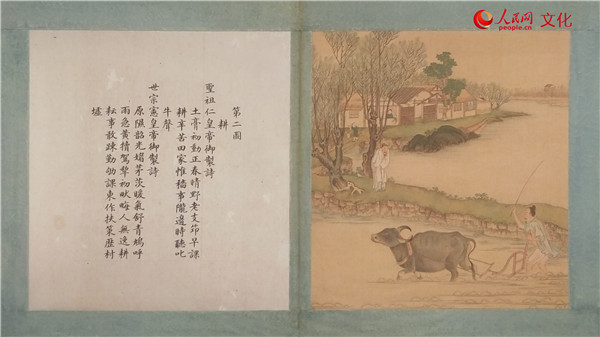 人民网 文化
people.cn
第二圖
耕
聖祖仁皇帝御製詩
土膏初動正春晴野老支筇早課
耕辛苦田家惟穡事隴邊時聽叱
牛聲
世宗憲皇帝御製詩
原隰韶光媚茅茨暖氣舒青鳩呼
雨急黃犢駕犂初畎畮人無逸耕
耘事敢疎勤劬課東作扶策歷村
墟